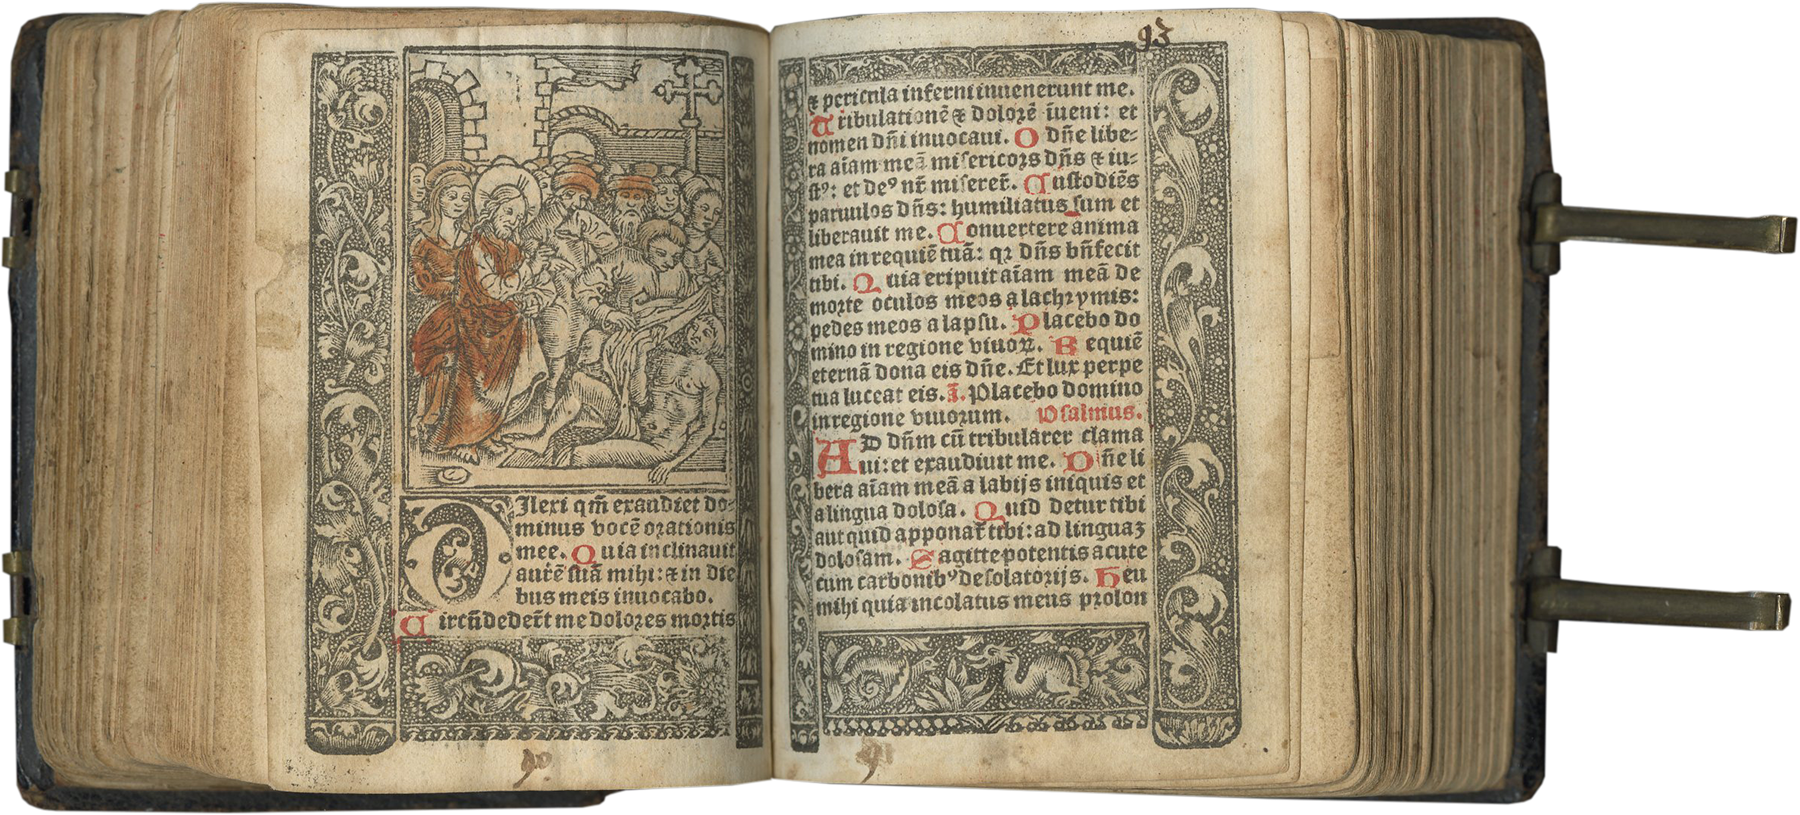 DIlexi qm̄ exaudiet do-
minus vocē orationis
mee. Quia inclinauit
aurē suā mihi: & in die
bus meis inuocabo.
Circūdederūt me dolores mortis
90
93
& pericula inferni inuenerunt me.
Tribulationē & dolorē īueni: et
nomen dn̄i inuocaui. O dn̄e libe-
ra aīam meā misericors dn̄s & iu-
stꝰ: et deꝰ nr̄ miseret̄. Custodiēs
paruulos dn̄s: humiliatus sum et
liberauit me. Conuertere anima
mea in requiē tuā: qꝛ dn̄s bn̄fecit
tibi. Quia eripuit aīam meā de
morte oculos meos a lachrymis:
pedes meos a lapsu. Placebo do
mino in regione viuoꝝ. Requiē
eternā dona eis dn̄e. Et lux perpe
tua luceat eis. Placebo domino
in regione viuorum. Psalmus.
AD dn̄m cū tribularer clama
ui: et exaudiuit me. Dn̄e li
bera aīam meā a labijs iniquis et
a lingua dolosa. Quid detur tibi
aut quid apponat̄ tibi: ad linguaꝫ
dolosam. Sagitte potentis acute
cum carbonibꝰ desolatorijs. Heu
mihi quia incolatus meus prolon
91